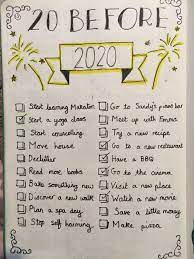 20 BEFORE
2020
Start learning Makaton
Start a yoga class
Start counselling
Move house
Declutter
Read more books
Bake something new
Discover a new walk
Plan a spa day
Stop self harming
Go to Sandy's piano bar
Meet up with Emma
Try a new recipe
Go to a new restaurant
Have a BBQ
Go to the cinema
Visit a new place
Watch a new movie
Save a little money
Make pizza